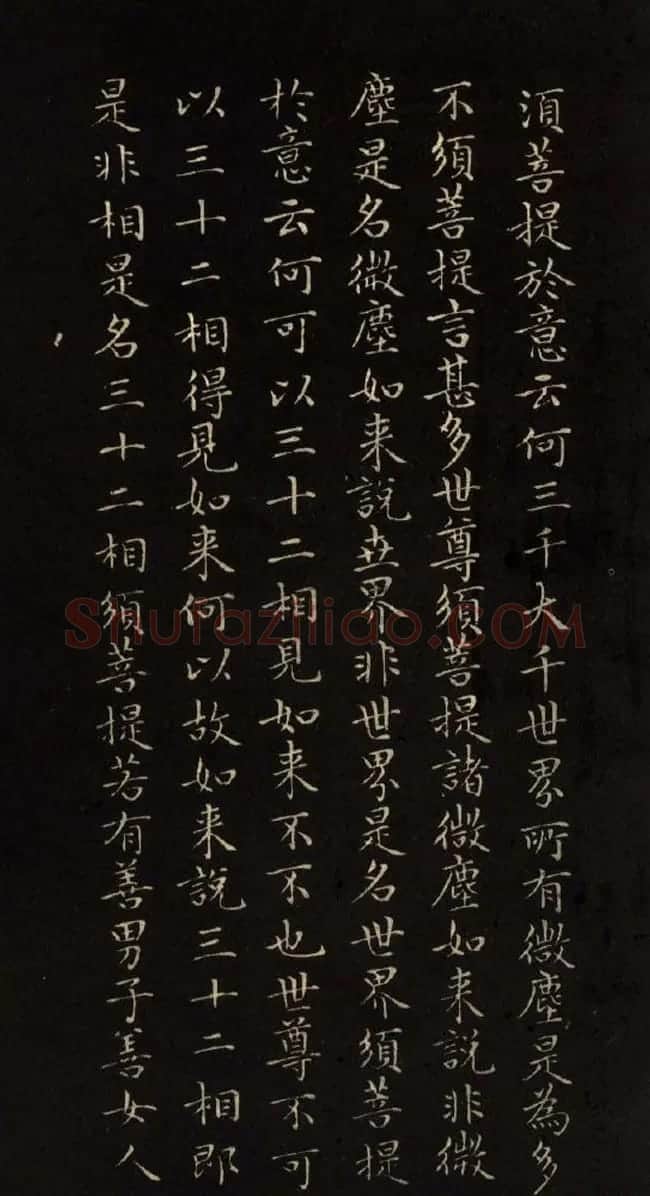 須菩提於意云何三千大千世界所有微塵是為多
不須菩提言甚多世尊須菩提諸微塵如来說非微
塵是名微塵如来說世界非世界是名世界須菩提
於意云何可以三十二相見如来不不也世尊不可
以三十二相得見如来何以故如来說三十二相即
是非相是名三十二相須菩提若有善男子善女人
Shufaziliao.COM